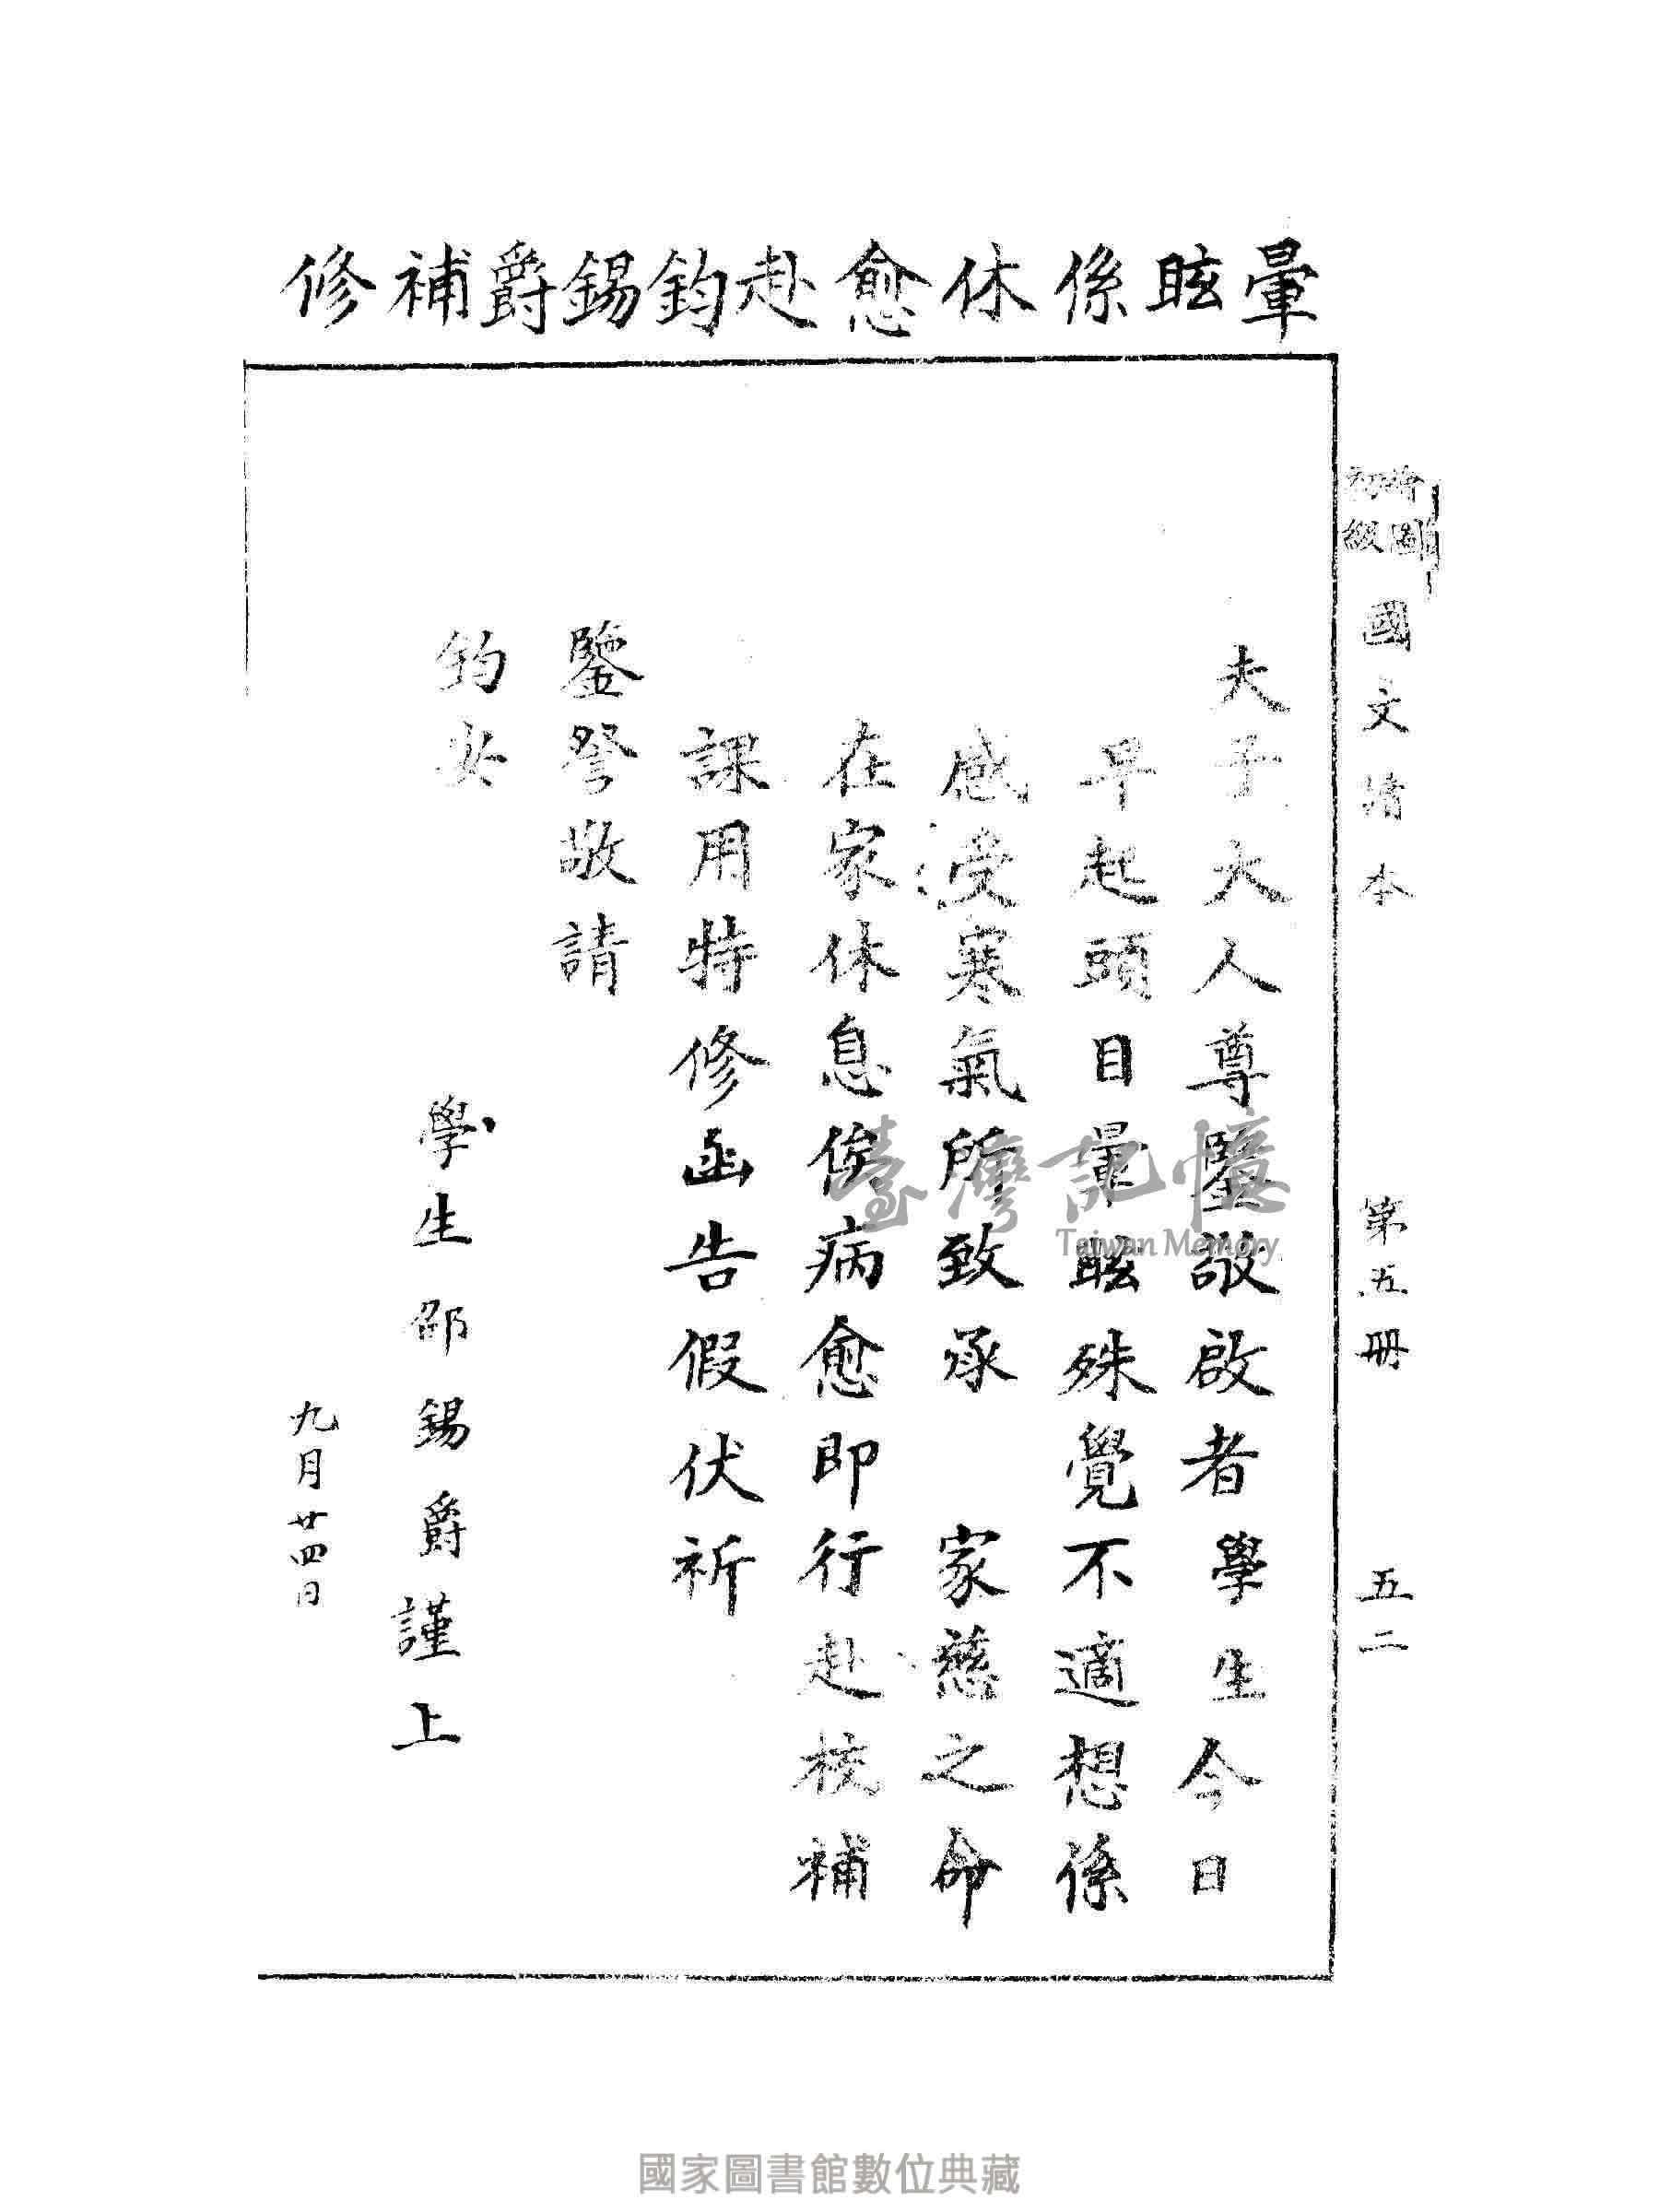 暈眩係休愈赴鈞錫爵補修
初級 國文讀本 第五冊 五二
夫子大人尊鑒敬啟者學生今日
早起頭目暈眩殊覺不適想係
感受寒氣所致承 家慈之命
在家休息俟病愈即行赴校補
課用特修函告假伏祈
鑒詧敬請
鈞安
學生邵錫爵謹上
九月廿四日
臺灣記憶
Taiwan Memory
國家圖書館數位典藏